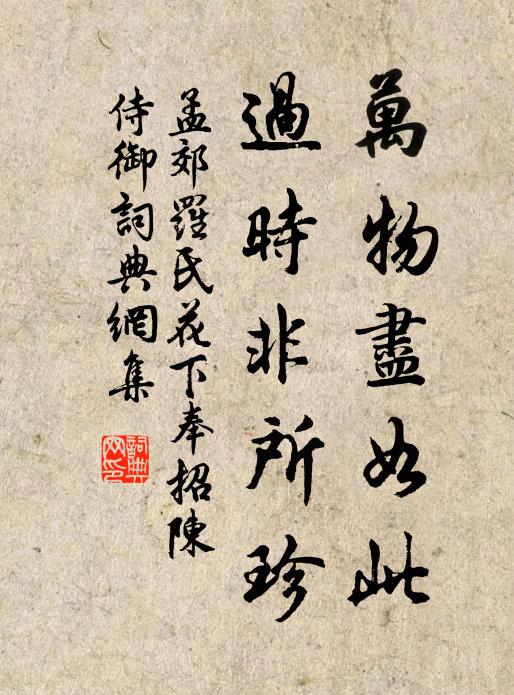 萬物盡如此
過時非所珍
孟郊羅氏花下奉招陳
侍御詞典網集
詞典網印